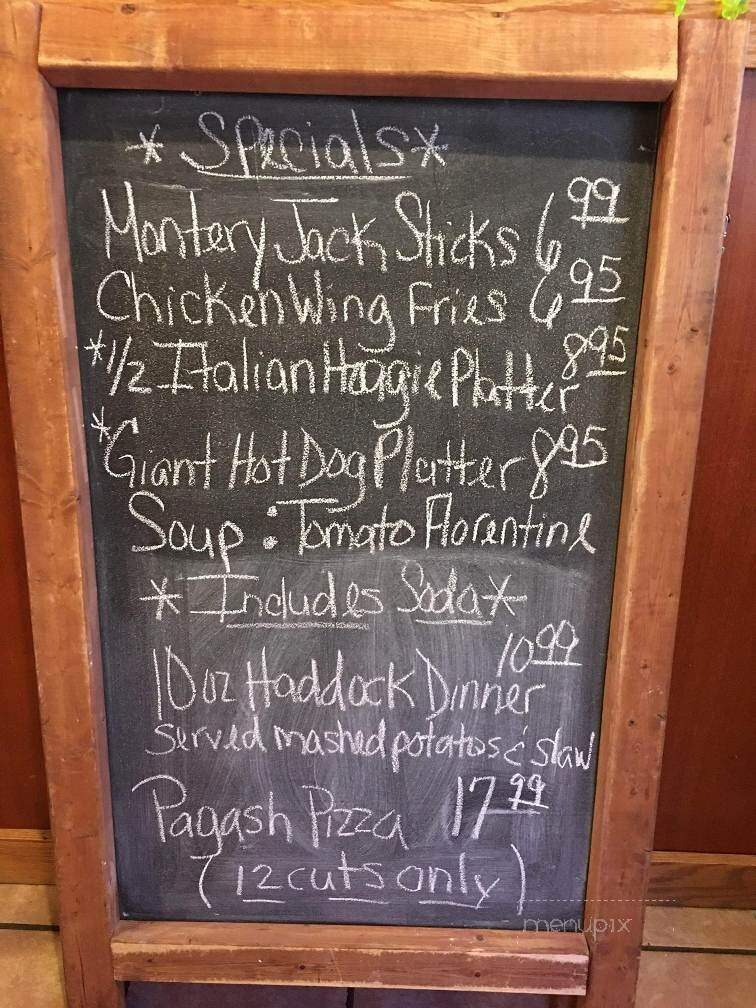 * Specials *
Montery Jack Sticks 6 99
Chicken Wing Fries 6 95
*1/2 Italian Hoagie Platter 8 95
*Giant Hot Dog Platter 8 95
Soup : Tomato Florentine
* Includes Soda *
10 oz Haddock Dinner 10 99
served mashed potatos & slaw
Pagash Pizza 17 99
(12 cuts only)
menupix